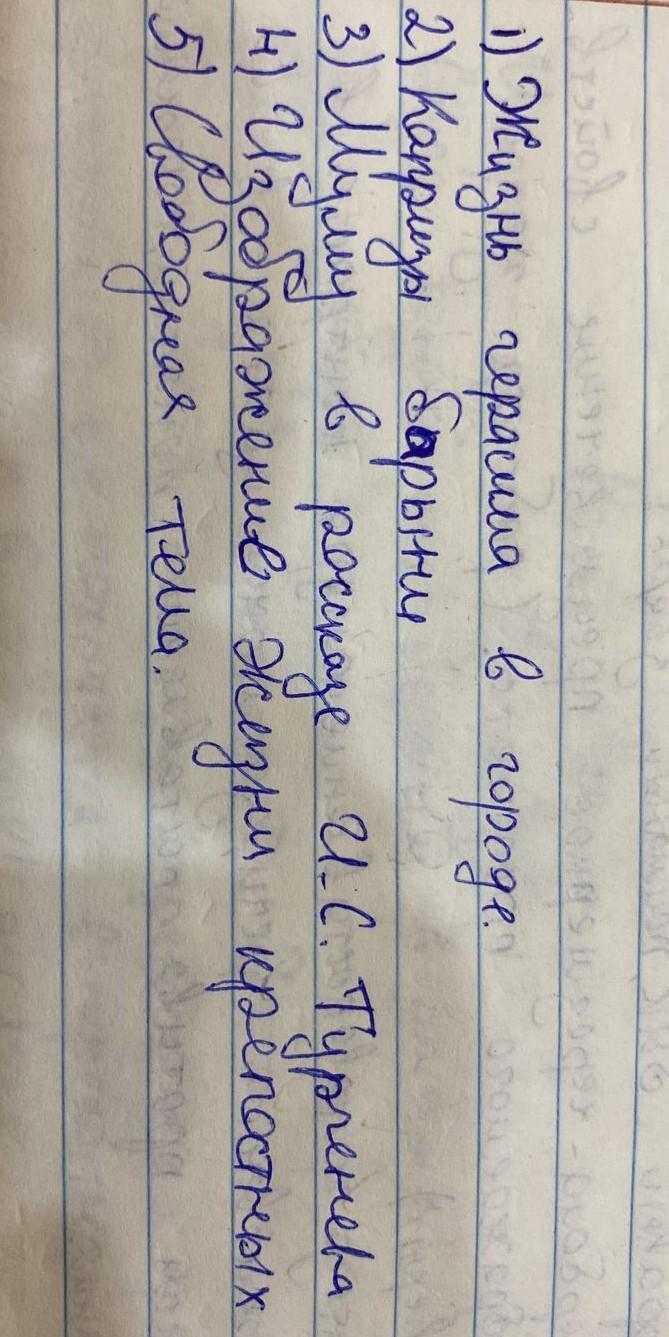 1) Жизнь герасима в городе.
2) Капризы барыни
3) Муму в рассказе И.С. Тургенева
4) Изображение жизни крепостных
5) Свободная тема.